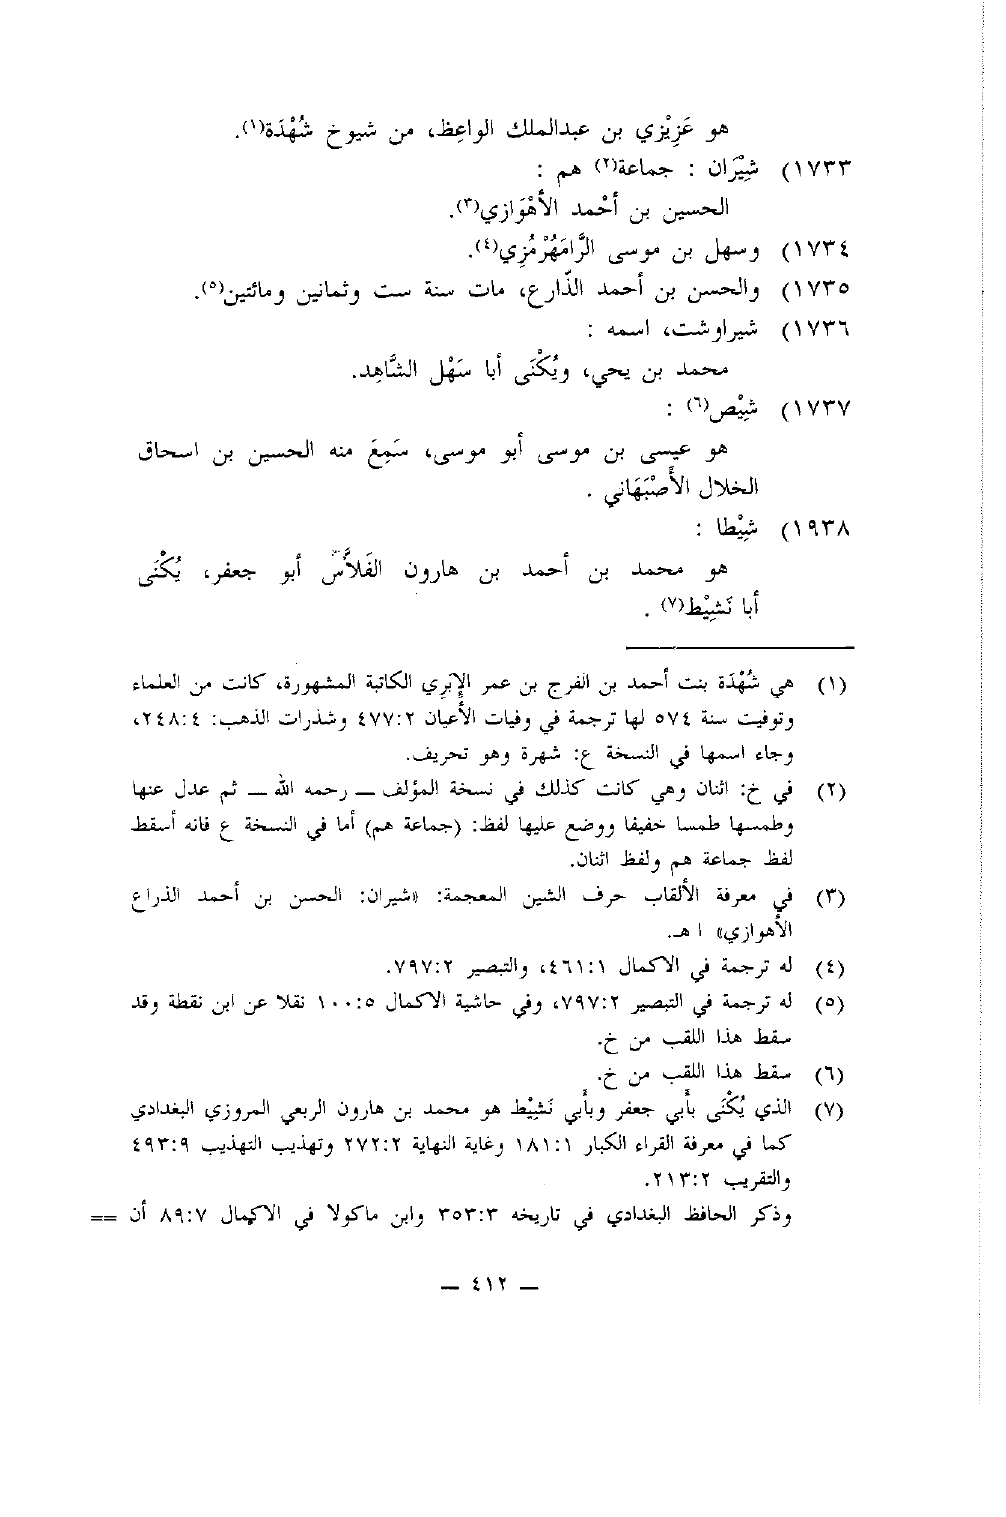 هو عَزِيْزي بن عبدالملك الواعِظ، من شيوخ شُهْدَة(١).
١٧٣٣) شِيْرَان : جماعة(٢) هم :
الحسين بن أحْمد الأَهْوَازي(٣).
١٧٣٤) وسهل بن موسى الرَّامَهُرْمُزِي(٤).
١٧٣٥) والحسن بن أحمد الذّارع، مات سنة ست وثمانين ومائتين(٥).
١٧٣٦) شيراوشت، اسمه :
محمد بن يحي، ويُكْنَى أبا سَهْل الشَّاهِد.
١٧٣٧) شِيْص(٦) :
هو عيسى بن موسى أبو موسى، سَمِعَ منه الحسين بن اسحاق
الخلال الأَصْبَهَاني .
١٩٣٨) شِيْطا :
هو محمد بن أحمد بن هارون الفَلاَّس أبو جعفر، يُكْنَى
أبا نَشِيْط(٧) .
(١) هي شُهْدَة بنت أحمد بن الفرج بن عمر الإبَرِي الكاتبة المشهورة، كانت من العلماء
وتوفيت سنة ٥٧٤ لها ترجمة في وفيات الأعيان ٤٧٧:٢ وشذرات الذهب: ٢٤٨:٤،
وجاء اسمها في النسخة ع: شهرة وهو تحريف.
(٢) في خ: اثنان وهي كانت كذلك في نسخة المؤلف ــ رحمه الله ــ ثم عدل عنها
وطمسها طمسا خفيفا ووضع عليها لفظ: (جماعة هم) أما في النسخة ع فانه أسقط
لفظ جماعة هم ولفظ اثنان.
(٣) في معرفة الألقاب حرف الشين المعجمة: «شيران: الحسن بن أحمد الذراع
الأهوازي» ا هـ.
(٤) له ترجمة في الاكمال ٤٦١:١، والتبصير ٧٩٧:٢.
(٥) له ترجمة في التبصير ٧٩٧:٢، وفي حاشية الاكمال ١٠٠:٥ نقلا عن ابن نقطة وقد
سقط هذا اللقب من خ.
(٦) سقط هذا اللقب من خ.
(٧) الذي يُكْنَى بأَبي جعفر وبأَبي نَشِيْط هو محمد بن هارون الربعي المروزي البغدادي
كما في معرفة القراء الكبار ١٨١:١ وغاية النهاية ٢٧٢:٢ وتهذيب التهذيب ٤٩٣:٩
والتقريب ٢١٣:٢.
وذكر الحافظ البغدادي في تاريخه ٣٥٣:٣ وابن ماكولا في الاكمال ٨٩:٧ أن ==
— ٤١٢ —